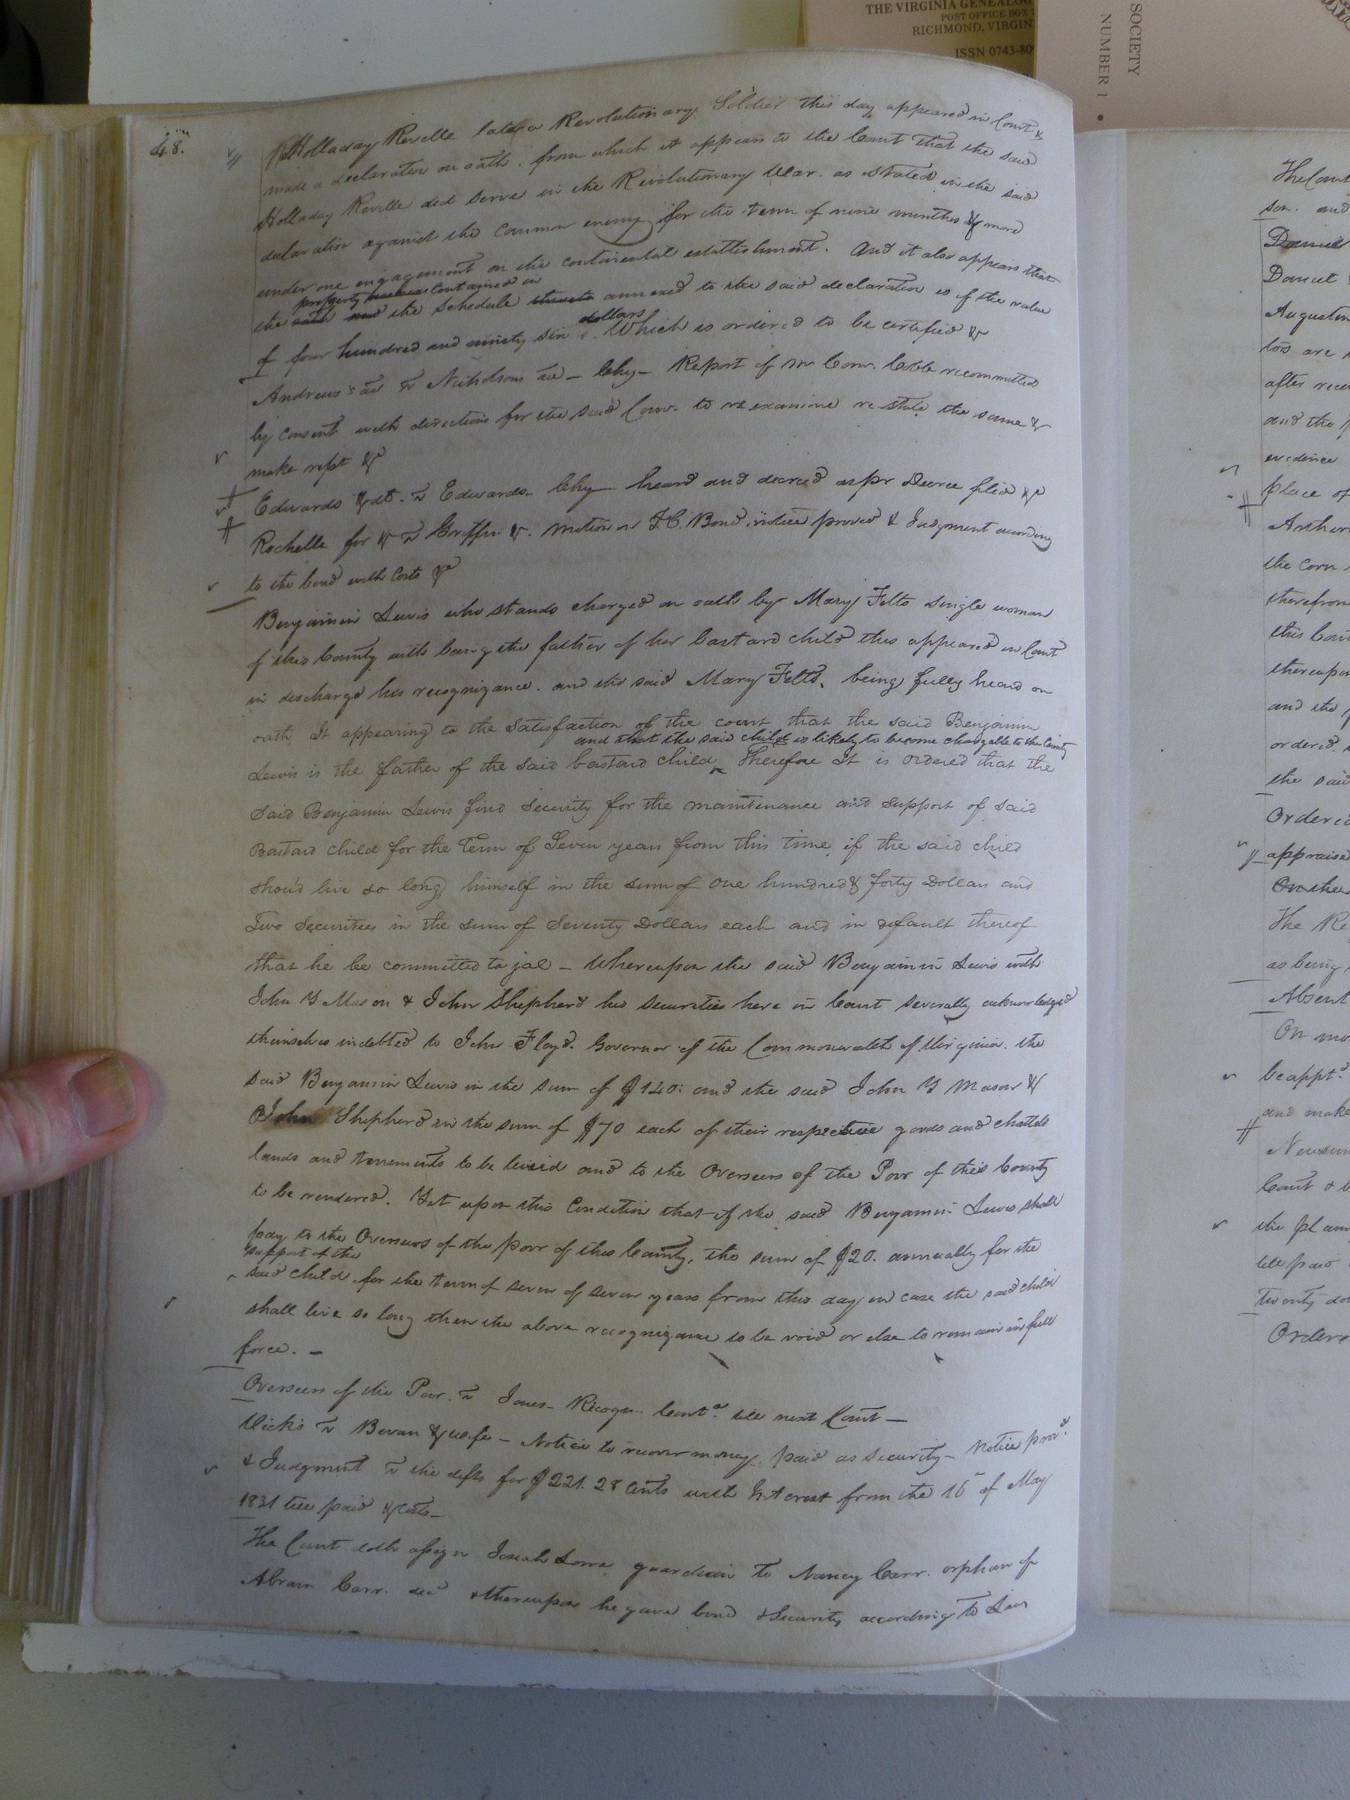 THE VIRGINIA GENEALOG
POST OFFICE BOX
RICHMOND, VIRGIN
ISSN 0743-80
SOCIETY
NUMBER 1
48.
Holladay Reville late a Revolutionary Soldier this day appeared in Court &
made a declaration on oath, from which it appears to the Court that the said
Holladay Reville did serve in the Revolutionary War. as stated in the said
declaration against the common enemy for the term of nine months & more
under one engagement on the continental establishment. And it also appears that
property contained in
the the schedule annexed to the said declaration is of the value
dollars
of four hundred and ninety six Which is ordered to be certified &
Andrews &c vs Nicholson &c – Chy – Report of Mr Com. Cobb recommitted
by consent with directions for the said Com. to re examine re state the same &
make rept &c
Edwards &als. vs Edwards – Chy – heard and decreed as pr Decree filed &c
Rochelle for & vs Griffin &. motion on F.C. Bond, notice proved & Judgment according
to the bond with Costs &c
Benjamin Lewis who stands charged on oath by Mary Felts single woman
of this County with being the father of her bastard child this appeared in Court
in discharge his recognizance. and the said Mary Felts, being fully heard on
oath, It appearing to the satisfaction of the court that the said Benjamin
and that the said child is likely to become chargable to the County
Lewis is the father of the said bastard child, Therefore It is ordered that the
said Benjamin Lewis find security for the maintenance and support of said
Bastard child for the Term of Seven years from this time, if the said child
should live so long, himself in the sum of One hundred & forty Dollars and
Two Securities in the sum of Seventy Dollars each and in default thereof
that he be committed to jal – Whereupon the said Benjamin Lewis with
John Y Mason & John Shepherd his securities here in Court severally acknowledged
themselves indebted to John Floyd. Governor of the Commonwealth of Virginia. the
said Benjamin Lewis in the sum of $140: and the said John Y Mason &
John Shepherd in the sum of $70 each of their respective goods and chattels
lands and tenements to be levied and to the Overseers of the Poor of this County
to be rendered. Yet upon this Condition that if the said Benjamin Lewis shall
pay to the Overseers of the poor of this County, the sum of $20. annually for the
support of the
said child for the term of seven of seven years from this day in case the said child
shall live so long then the above recognizance to be void or else to remain in full
force. –
Overseers of the Poor. vs Jones – Recogn. Contd. till next Court –
Vicks vs Bevan & wife – Notice to recover money paid as security – Notice provd.
& Judgment vs the defts for $221.28 Cents with Interest from the 16 of May
1831 till paid & Costs –
The Court doth assign Josiah Lowe guardian to Nancy Carr. orphan of
Abram Carr. decd & thereupon he gave bond & Security according to Law
The Court
son. and
Daniel
Daniel
Augustin
tors are
after
and the
evidence
place of
the corn
therefrom
this Court
thereupon
and the
ordered.
the said
Ordered
appraise
On the
The Re
as being
Absent
On mo
be apptd
and make
Newsum
Court
the pl
till paid
Twenty do
Ordere